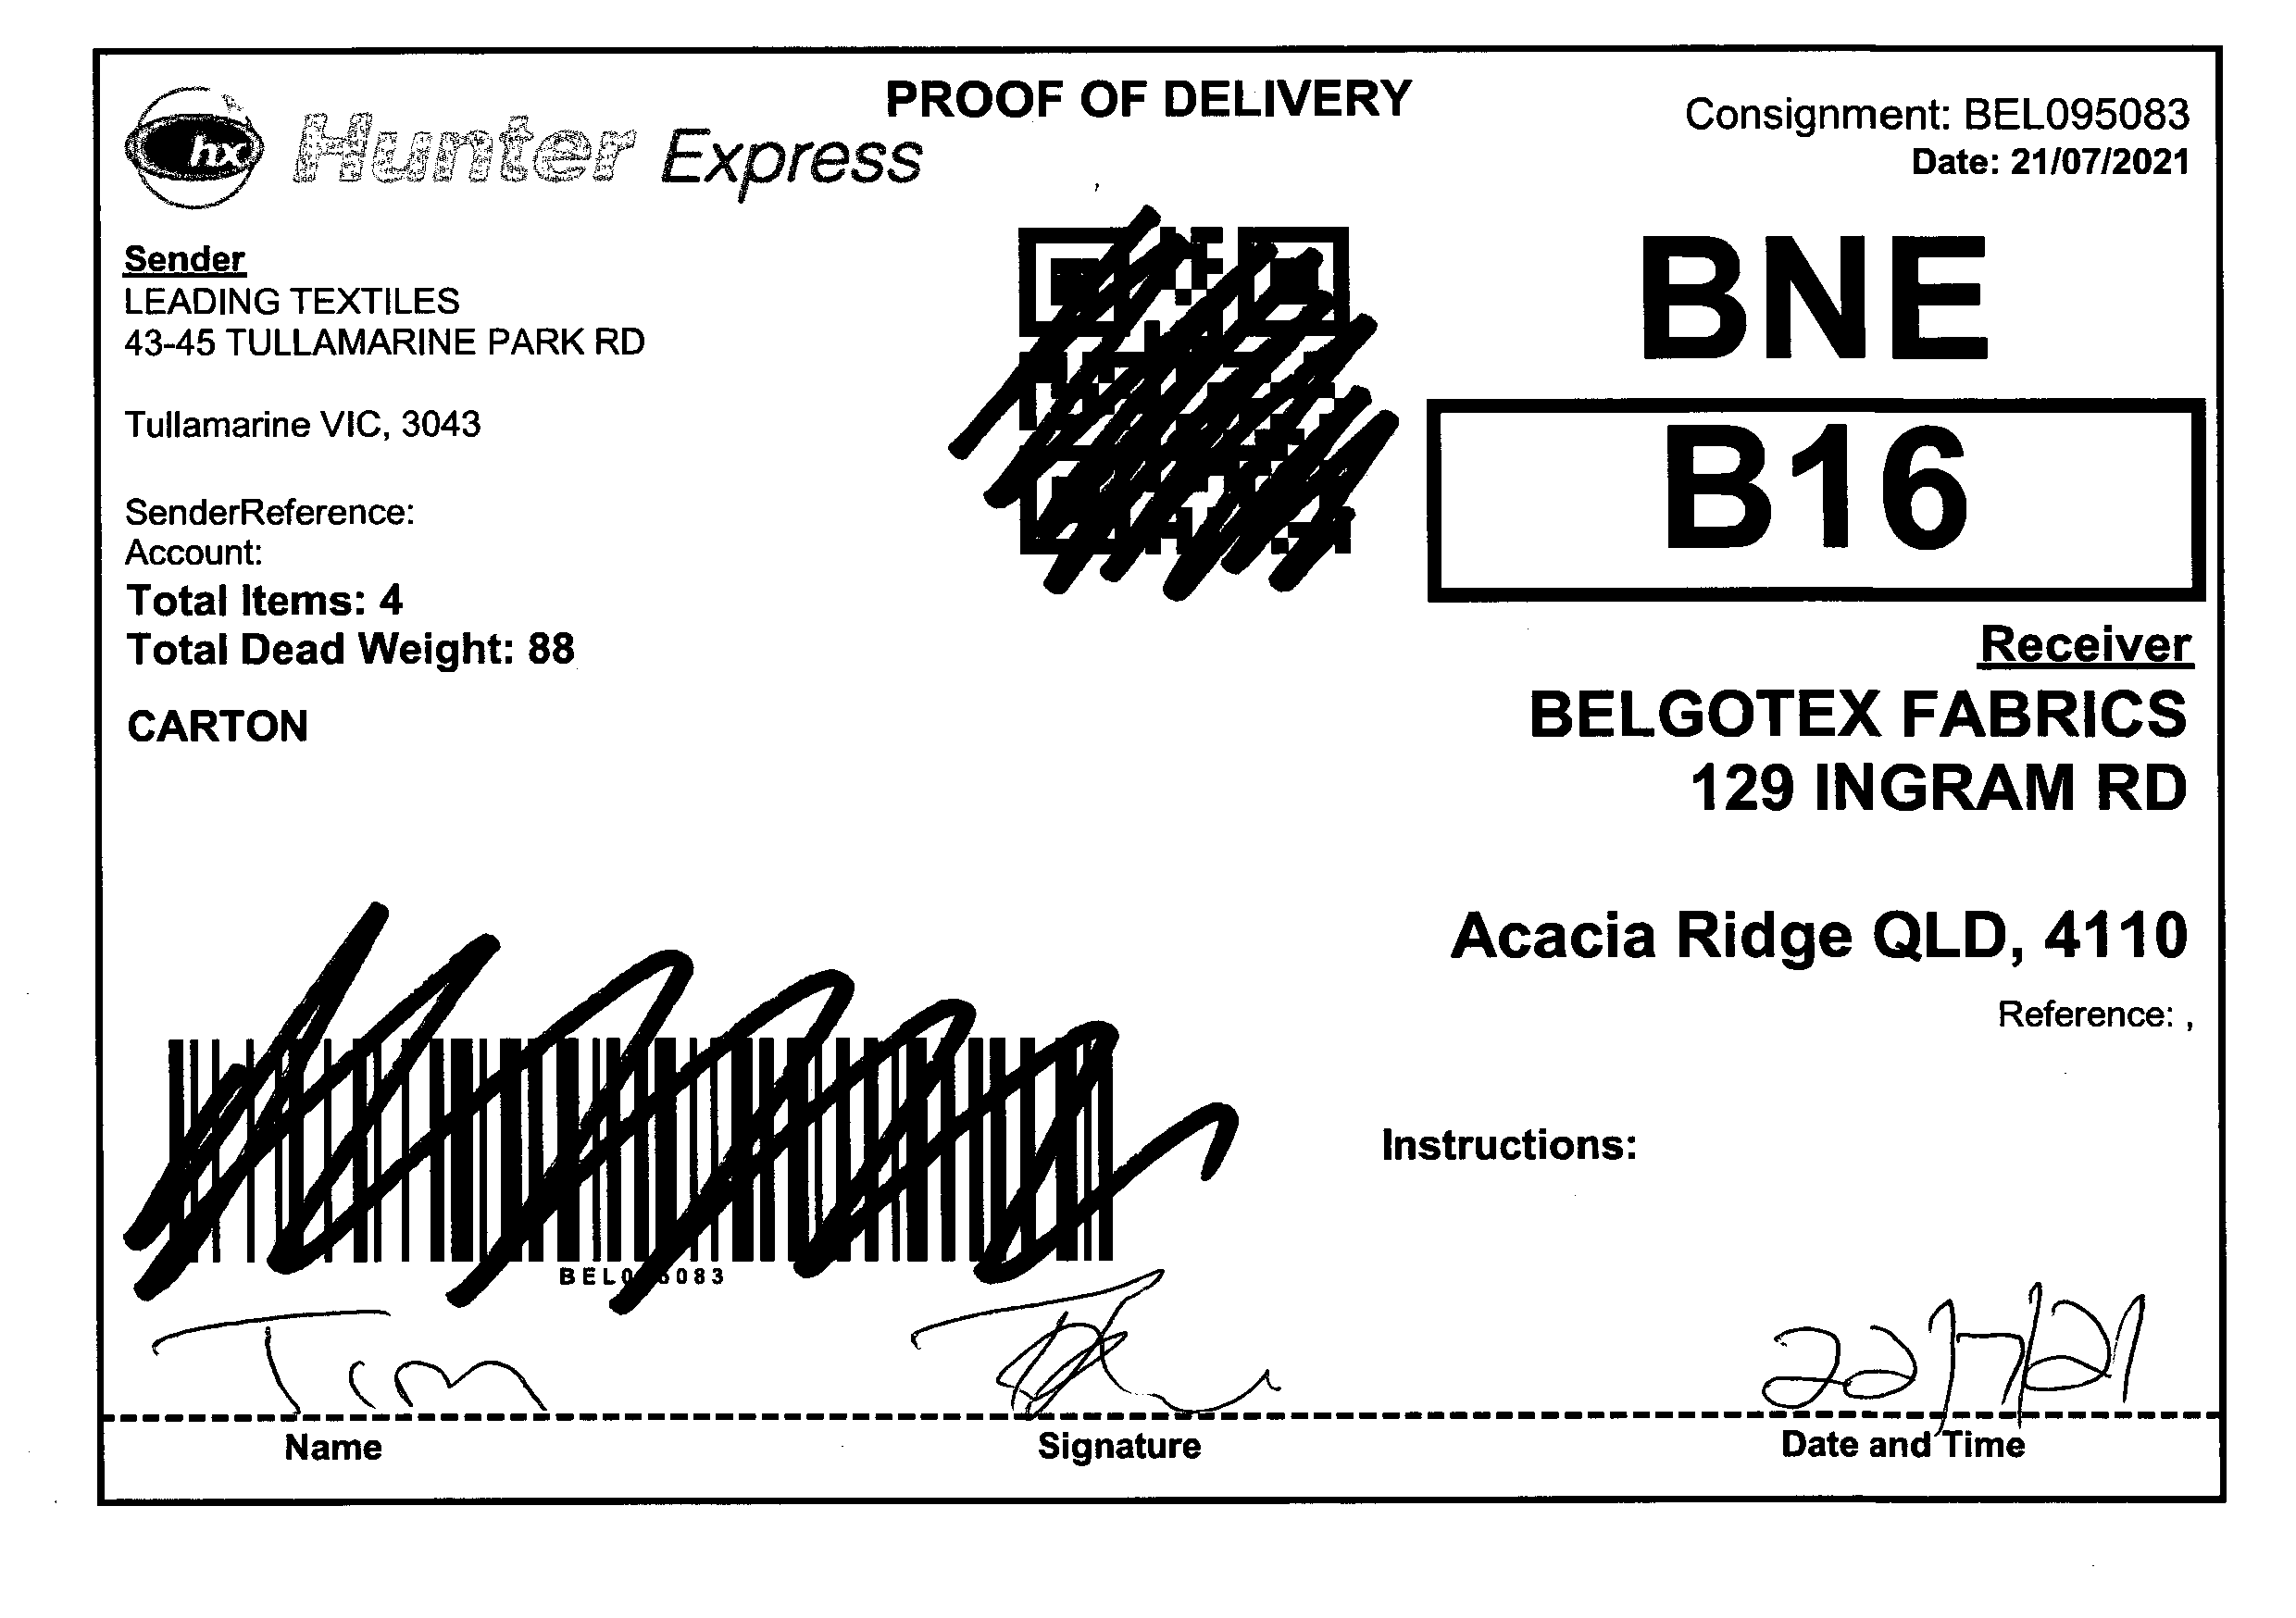 PROOF OF DELIVERY
hx Hunter Express
Consignment: BEL095083
Date: 21/07/2021
Sender
LEADING TEXTILES
43-45 TULLAMARINE PARK RD
Tullamarine VIC, 3043
SenderReference:
Account:
Total Items: 4
Total Dead Weight: 88
CARTON
BNE
B16
Receiver
BELGOTEX FABRICS
129 INGRAM RD
Acacia Ridge QLD, 4110
Reference: ,
Instructions:
Tim
22/7/21
Name
Signature
Date and Time